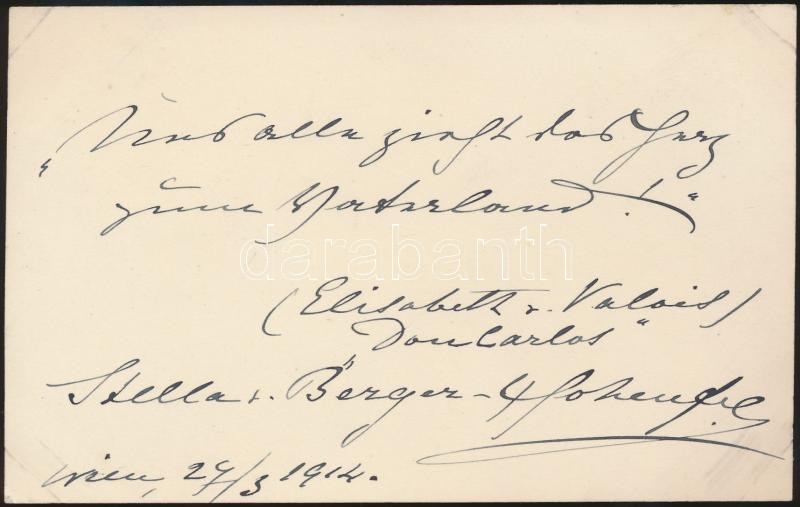 „Uns alle zieht das Herz
zum Vaterland!“
darabanth
(Elisabeth v. Valois)
„Don Carlos“
Stella v. Berger-Hohenfels
Wien, 24/3 1914.